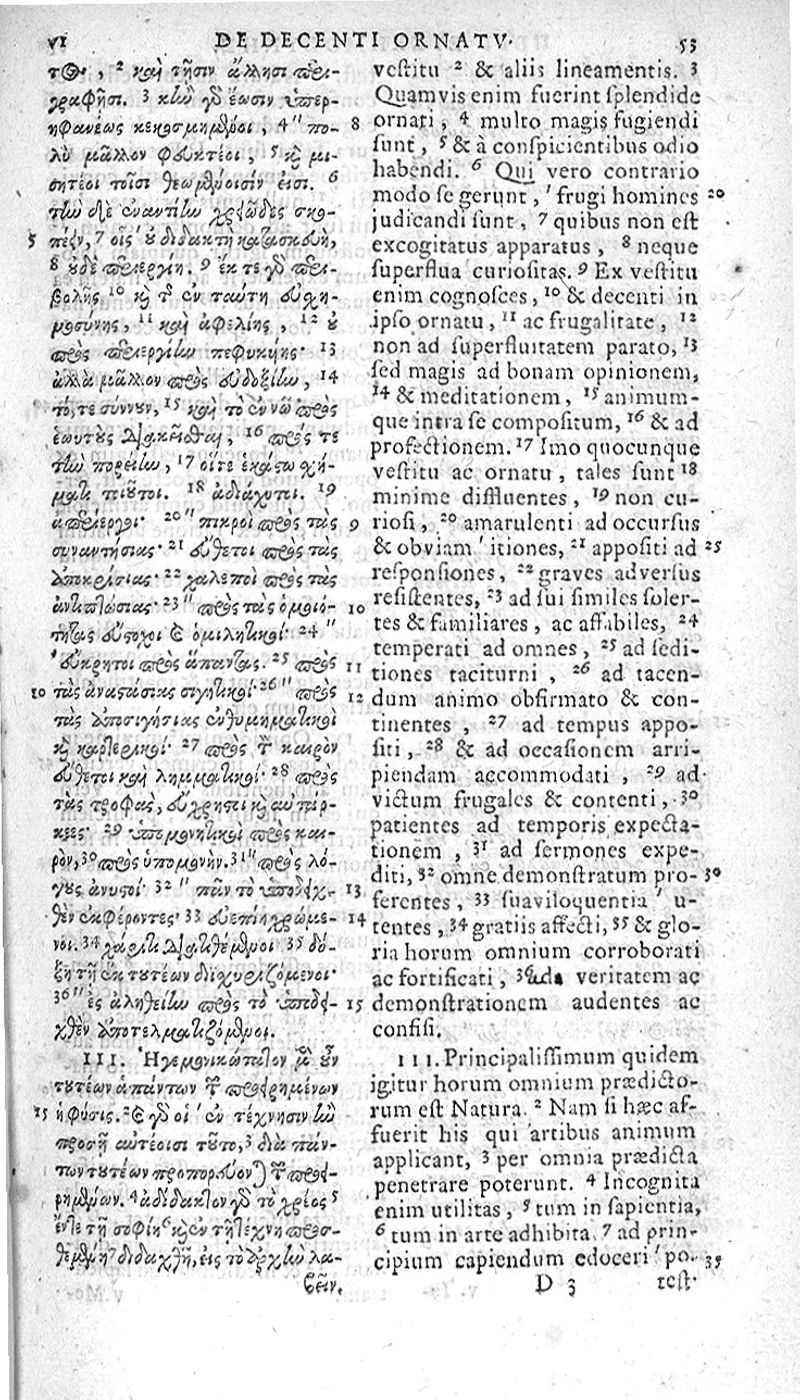 VI DE DECENTI ORNATV. 53
τος, 2 καὶ τῇσιν ἄλλῃσι περι-
γραφῇσι. 3 κἢν γὰρ ἔωσιν ὑπερ-
ηφανέως κεκοσμημένοι, 4 " πο- 8
λὺ μᾶλλον φευκτέοι, 5 καὶ μι-
σητέοι τοῖσι θεωμένοισίν εἰσι. 6
τὴν δὲ ἐναντίην χρεῶδες σκο-
5 πεῖν, 7 οἷς ' οὐ διδακτὴ κατασκευὴ,
8 οὐδὲ περιεργίη. 9 ἔκ τε γὰρ περι-
βολῆς 10 καὶ τῆς ἐν ταύτῃ εὐσχη-
μοσύνης, 11 καὶ ἀφελίης, 12 οὐ
πρὸς περιεργίην πεφυκυίης· 13
ἀλλὰ μᾶλλον πρὸς εὐδοξίην, 14
τό, τε σύννουν, 15 καὶ τὸ ἐν νῷ πρὸς
ἑωυτοὺς διακεῖσθαι, 16 πρός τε
τὴν πορείην, 17 οἵ τε ἑκάστῳ σχή-
ματι τοιοῦτοι. 18 ἀδιάχυτοι. 19
ἀπερίεργοι· 20 " πικροὶ πρὸς τὰς 9
συναντήσιας· 21 εὔθετοι πρὸς τὰς
ἀποκρίσιας· 22 χαλεποὶ πρὸς τὰς
ἀντιπτώσιας· 23 " πρὸς τὰς ὁμοιό- 10
τητας εὔστοχοι καὶ ὁμιλητικοί· 24 "
' εὔκρητοι πρὸς ἅπαντας. 25 πρὸς 11
10 τὰς ἀναστάσιας σιγητικοί· 26 " πρὸς 12
τὰς ἀποσιγήσιας ἐνθυμηματικοὶ
καὶ καρτερικοί· 27 πρὸς τὸν καιρὸν
εὔθετοι καὶ λημματικοί· 28 πρὸς
τὰς τροφὰς, εὔχρηστοι καὶ αὐτάρ-
κεες· 29 ὑπομονητικοὶ πρὸς και-
ρὸν, 30 πρὸς ὑπομονὴν. 31 " πρὸς λό-
γους ἀνυστοί· 32 " πᾶν τὸ ὑποδειχ- 13
θὲν ἐκφέροντες· 33 εὐεπίῃ χρώμε- 14
νοι. 34 χάριτι διατιθέμενοι 35 δό-
ξῃ τῇ ἐκ τουτέων διϊσχυριζόμενοι·
36 " ἐς ἀληθείην πρὸς τὸ ὑποδει- 15
χθὲν ἀποτελματιζόμενοι.
III. Ἡγεμονικώτατον μὲν οὖν
τουτέων ἁπάντων τῶν προειρημένων
15 ἡ φύσις. 2 καὶ γὰρ οἱ ' ἐν τέχνῃσιν ἢν
προσῇ αὐτέοισι τοῦτο, 3 διὰ πάν-
των τουτέων προπορεύονται τῶν προει-
ρημένων. 4 ἀδίδακτον γὰρ τὸ χρέος 5
ἔν τε τῇ σοφίῃ 6 καὶ ἐν τῇ τέχνῃ προσ-
θεμένῃ 7 διδαχθῇ, εἰς τὸ ἀρχὴν λα-
βεῖν,
vestitu 2 & aliis lineamentis. 3
Quamvis enim fuerint splendide
ornati, 4 multo magis fugiendi
sunt, 5 & à conspicientibus odio
habendi. 6 Qui vero contrario
modo se gerunt, ' frugi homines 20
judicandi sunt, 7 quibus non est
excogitatus apparatus, 8 neque
superflua curiositas. 9 Ex vestitu
enim cognosces, 10 & decenti in
ipso ornatu, 11 ac frugalitate, 12
non ad superfluitatem parato, 13
sed magis ad bonam opinionem,
14 & meditationem, 15 animum-
que intra se compositum, 16 & ad
profectionem. 17 Imo quocunque
vestitu ac ornatu, tales sunt 18
minime diffluentes, 19 non cu-
riosi, 20 amarulenti ad occursus
& obviam ' itiones, 21 appositi ad 25
responsiones, 22 graves adversus
resistentes, 23 ad sui similes soler-
tes & familiares, ac affabiles, 24
temperati ad omnes, 25 ad sedi-
tiones taciturni, 26 ad tacen-
dum animo obfirmato & con-
tinentes, 27 ad tempus appo-
siti, 28 & ad occasionem arri-
piendam accommodati, 29 ad
victum frugales & contenti, 30
patientes ad temporis expecta-
tionem, 31 ad sermones expe-
diti, 32 omne demonstratum pro- 30
ferentes, 33 suaviloquentia ' u-
tentes, 34 gratiis affecti, 35 & glo-
ria horum omnium corroborati
ac fortificati, 36 ad veritatem ac
demonstrationem audentes ac
confisi.
III. Principalissimum quidem
igitur horum omnium prædicto-
rum est Natura. 2 Nam si hæc af-
fuerit his qui artibus animum
applicant, 3 per omnia prædicta
penetrare poterunt. 4 Incognita
enim utilitas, 5 tum in sapientia,
6 tum in arte adhibita, 7 ad prin-
cipium capiendum edoceri ' po- 35
D 3 test.